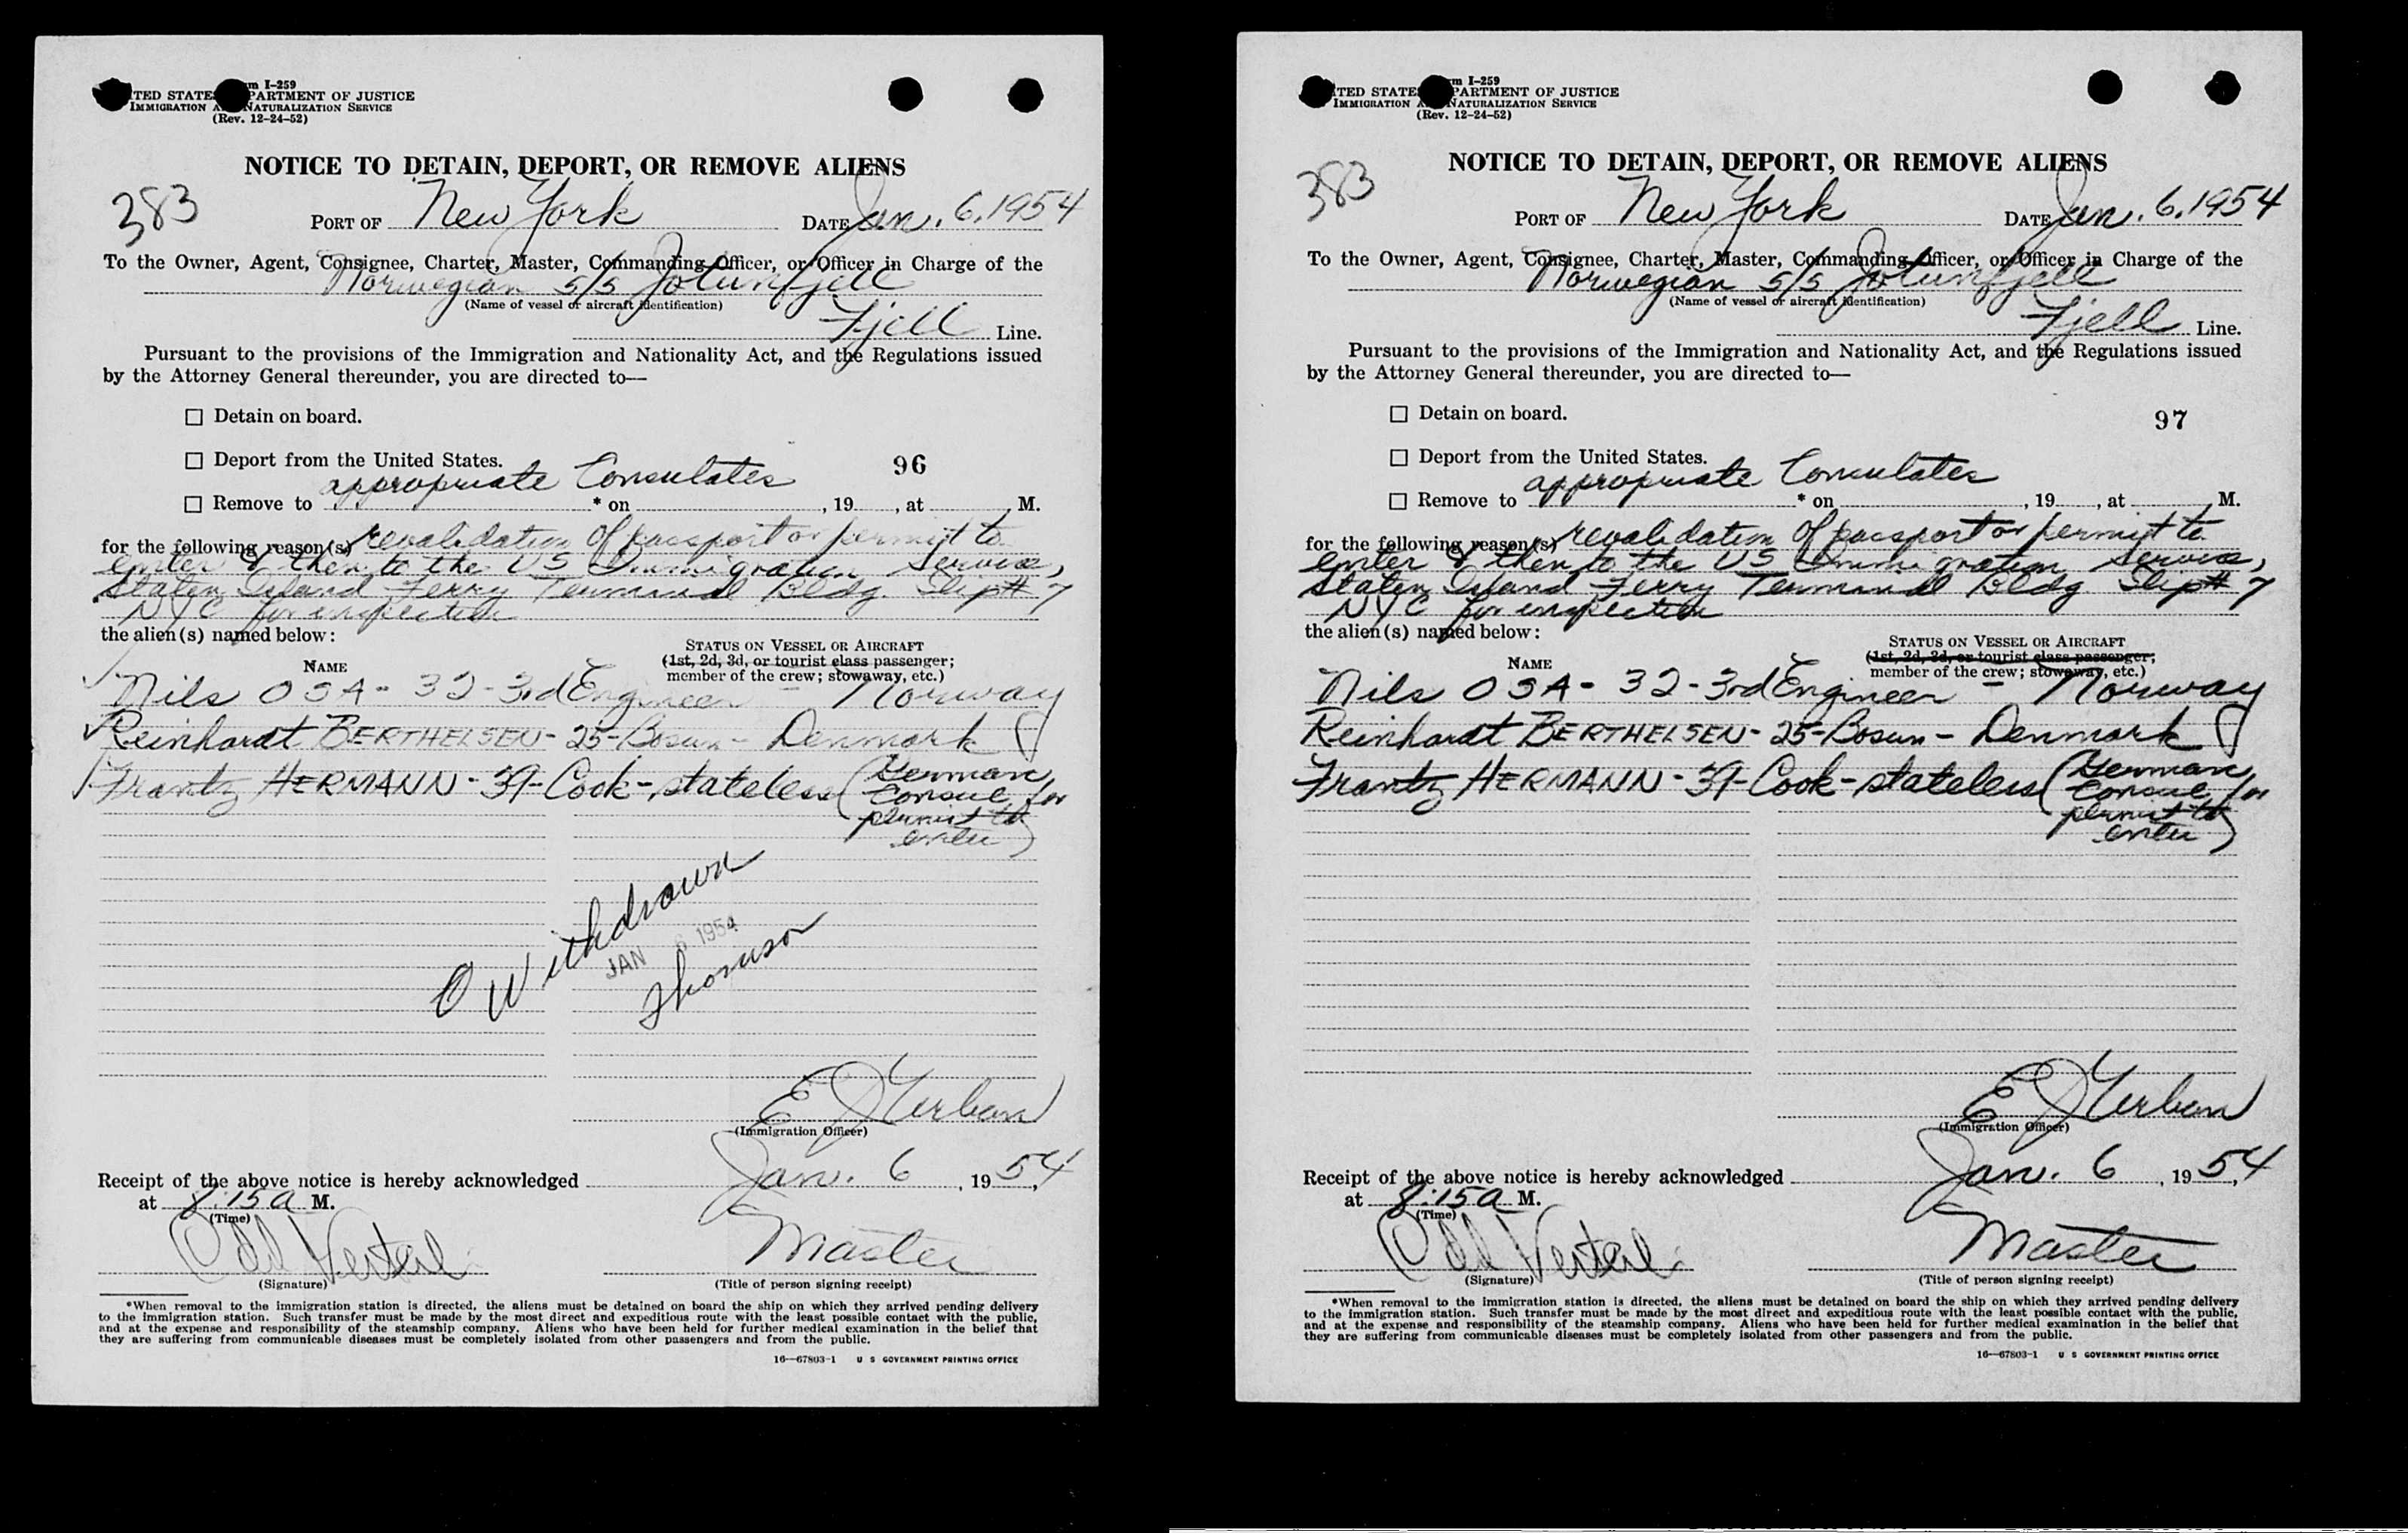 m I-259
TED STATE PARTMENT OF JUSTICE
IMMIGRATION A NATURALIZATION SERVICE
(Rev. 12-24-52)
NOTICE TO DETAIN, DEPORT, OR REMOVE ALIENS
383
PORT OF New York DATE Jan. 6, 1954
To the Owner, Agent, Consignee, Charter, Master, Commanding Officer, or Officer in Charge of the
Norwegian S/S Jotunfjell
(Name of vessel or aircraft identification)
Fjell Line.
Pursuant to the provisions of the Immigration and Nationality Act, and the Regulations issued
by the Attorney General thereunder, you are directed to—
☐ Detain on board.
☐ Deport from the United States. 96
appropriate Consulates
☐ Remove to * on , 19 , at M.
for the following reason(s) revalidation of passport or permit to
enter & then to the US Immigration Service,
Staten Island Ferry Terminal Bldg. Slip # 7
NYC for inspection
the alien(s) named below:
STATUS ON VESSEL OR AIRCRAFT
NAME (1st, 2d, 3d, or tourist class passenger;
member of the crew; stowaway, etc.)
Nils OSA - 32 - 3rd Engineer - Norway
Reinhardt BERTHELSEN - 25 - Bosun - Denmark
Frantz HERMANN - 39 - Cook - stateless (German
Consul for
permit to
enter)
Withdrawn
JAN 6 1954
Thomson
E J
(Immigration Officer)
Receipt of the above notice is hereby acknowledged Jan. 6, 1954,
at 8:15 a M.
(Time)
Odd Master
(Signature) (Title of person signing receipt)
*When removal to the immigration station is directed, the aliens must be detained on board the ship on which they arrived pending delivery
to the immigration station. Such transfer must be made by the most direct and expeditious route with the least possible contact with the public,
and at the expense and responsibility of the steamship company. Aliens who have been held for further medical examination in the belief that
they are suffering from communicable diseases must be completely isolated from other passengers and from the public.
16—67803-1 U S GOVERNMENT PRINTING OFFICE
m I-259
TED STATE PARTMENT OF JUSTICE
IMMIGRATION A NATURALIZATION SERVICE
(Rev. 12-24-52)
NOTICE TO DETAIN, DEPORT, OR REMOVE ALIENS
383
PORT OF New York DATE Jan. 6, 1954
To the Owner, Agent, Consignee, Charter, Master, Commanding Officer, or Officer in Charge of the
Norwegian S/S Jotunfjell
(Name of vessel or aircraft identification)
Fjell Line.
Pursuant to the provisions of the Immigration and Nationality Act, and the Regulations issued
by the Attorney General thereunder, you are directed to—
☐ Detain on board. 97
☐ Deport from the United States.
appropriate Consulates
☐ Remove to * on , 19 , at M.
for the following reason(s) revalidation of passport or permit to
enter & then to the US Immigration Service,
Staten Island Ferry Terminal Bldg Slip # 7
NYC for inspection
the alien(s) named below:
STATUS ON VESSEL OR AIRCRAFT
NAME (1st, 2d, 3d, or tourist class passenger;
member of the crew; stowaway, etc.)
Nils OSA - 32 - 3rd Engineer - Norway
Reinhardt BERTHELSEN - 25 - Bosun - Denmark
Frantz HERMANN - 39 - Cook - stateless (German
Consul for
permit to
enter)
E J
(Immigration Officer)
Receipt of the above notice is hereby acknowledged Jan. 6, 1954,
at 8:15 a M.
(Time)
Odd Master
(Signature) (Title of person signing receipt)
*When removal to the immigration station is directed, the aliens must be detained on board the ship on which they arrived pending delivery
to the immigration station. Such transfer must be made by the most direct and expeditious route with the least possible contact with the public,
and at the expense and responsibility of the steamship company. Aliens who have been held for further medical examination in the belief that
they are suffering from communicable diseases must be completely isolated from other passengers and from the public.
16—67803-1 U S GOVERNMENT PRINTING OFFICE